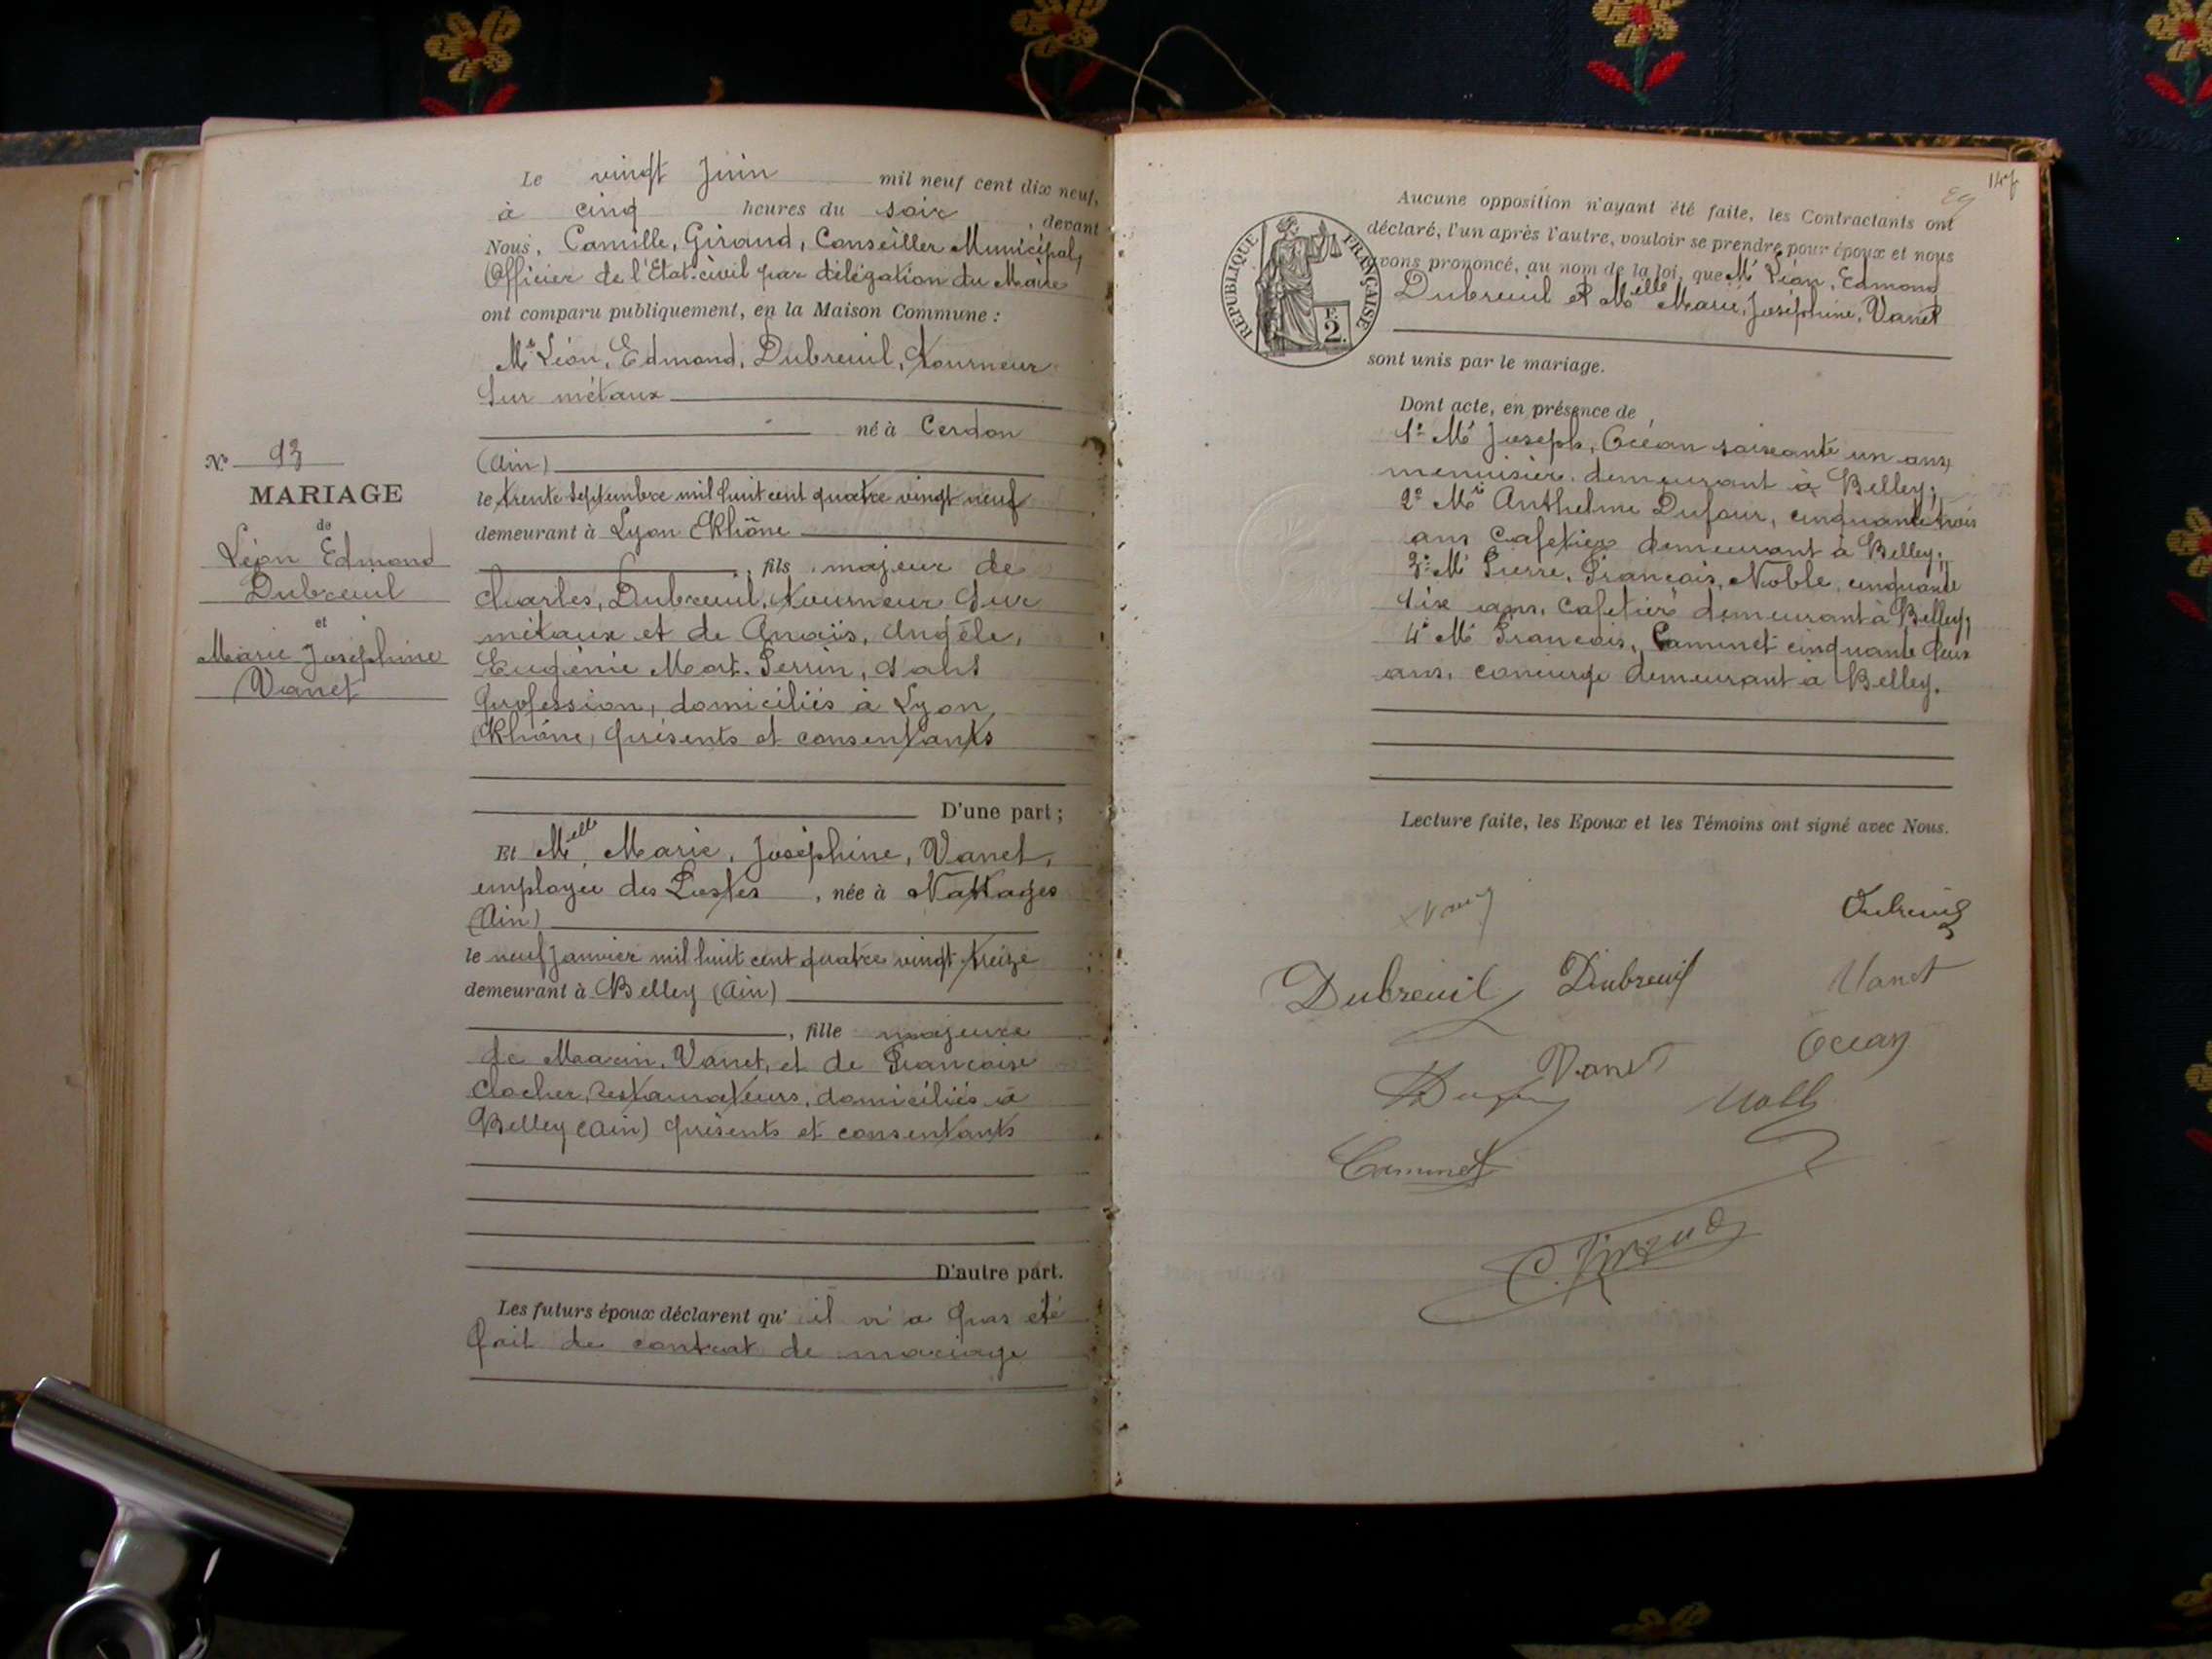 Le vingt Juin mil neuf cent dix neuf,
à cinq heures du soir, devant
Nous, Camille, Giraud, Conseiller Municipal,
Officier de l'État-civil par délégation du Maire
ont comparu publiquement, en la Maison Commune :
Mr Léon, Edmond, Dubreuil, tourneur
sur métaux
né à Cerdon
(Ain)
le trente septembre mil huit cent quatre vingt neuf
demeurant à Lyon (Rhône
, fils majeur de
Charles, Dubreuil, tourneur sur
métaux et de Anaïs, Angèle,
Eugénie Mort. Perrin, sans
profession, domiciliés à Lyon
(Rhône, présents et consentants
D'une part ;
Et Melle Marie, Joséphine, Vanet,
employée des Postes, née à Nattages
(Ain)
le neuf Janvier mil huit cent quatre vingt treize
demeurant à Belley (Ain)
, fille majeure
de Marin, Vanet, et de Françoise
Clocher, restaurateurs, domiciliés à
Belley (Ain) présents et consentants
D'autre part.
Les futurs époux déclarent qu' il n'a pas été
fait de contrat de mariage
No 93
MARIAGE
de
Léon Edmond
Dubreuil
et
Marie Joséphine
Vanet
147
89
RÉPUBLIQUE FRANÇAISE
F.
2.
Aucune opposition n'ayant été faite, les Contractants ont
déclaré, l'un après l'autre, vouloir se prendre pour époux et nous
avons prononcé, au nom de la loi, que Mr Léon, Edmond
Dubreuil et Melle Marie, Joséphine, Vanet
sont unis par le mariage.
Dont acte, en présence de
1º Mr Joseph, Océan soixante un ans,
menuisier demeurant à Belley;
2º Mr Anthelme Dufour, cinquante trois
ans cafetier demeurant à Belley;
3º Mr Pierre, François, Noble, cinquante
six ans, cafetier demeurant à Belley;
4º Mr François, Caminet cinquante deux
ans, concierge demeurant à Belley.
Lecture faite, les Epoux et les Témoins ont signé avec Nous.
Dubreuil
Dubreuil Dubreuil Vanet
Vanet Océan
Caminet
C. Giraud